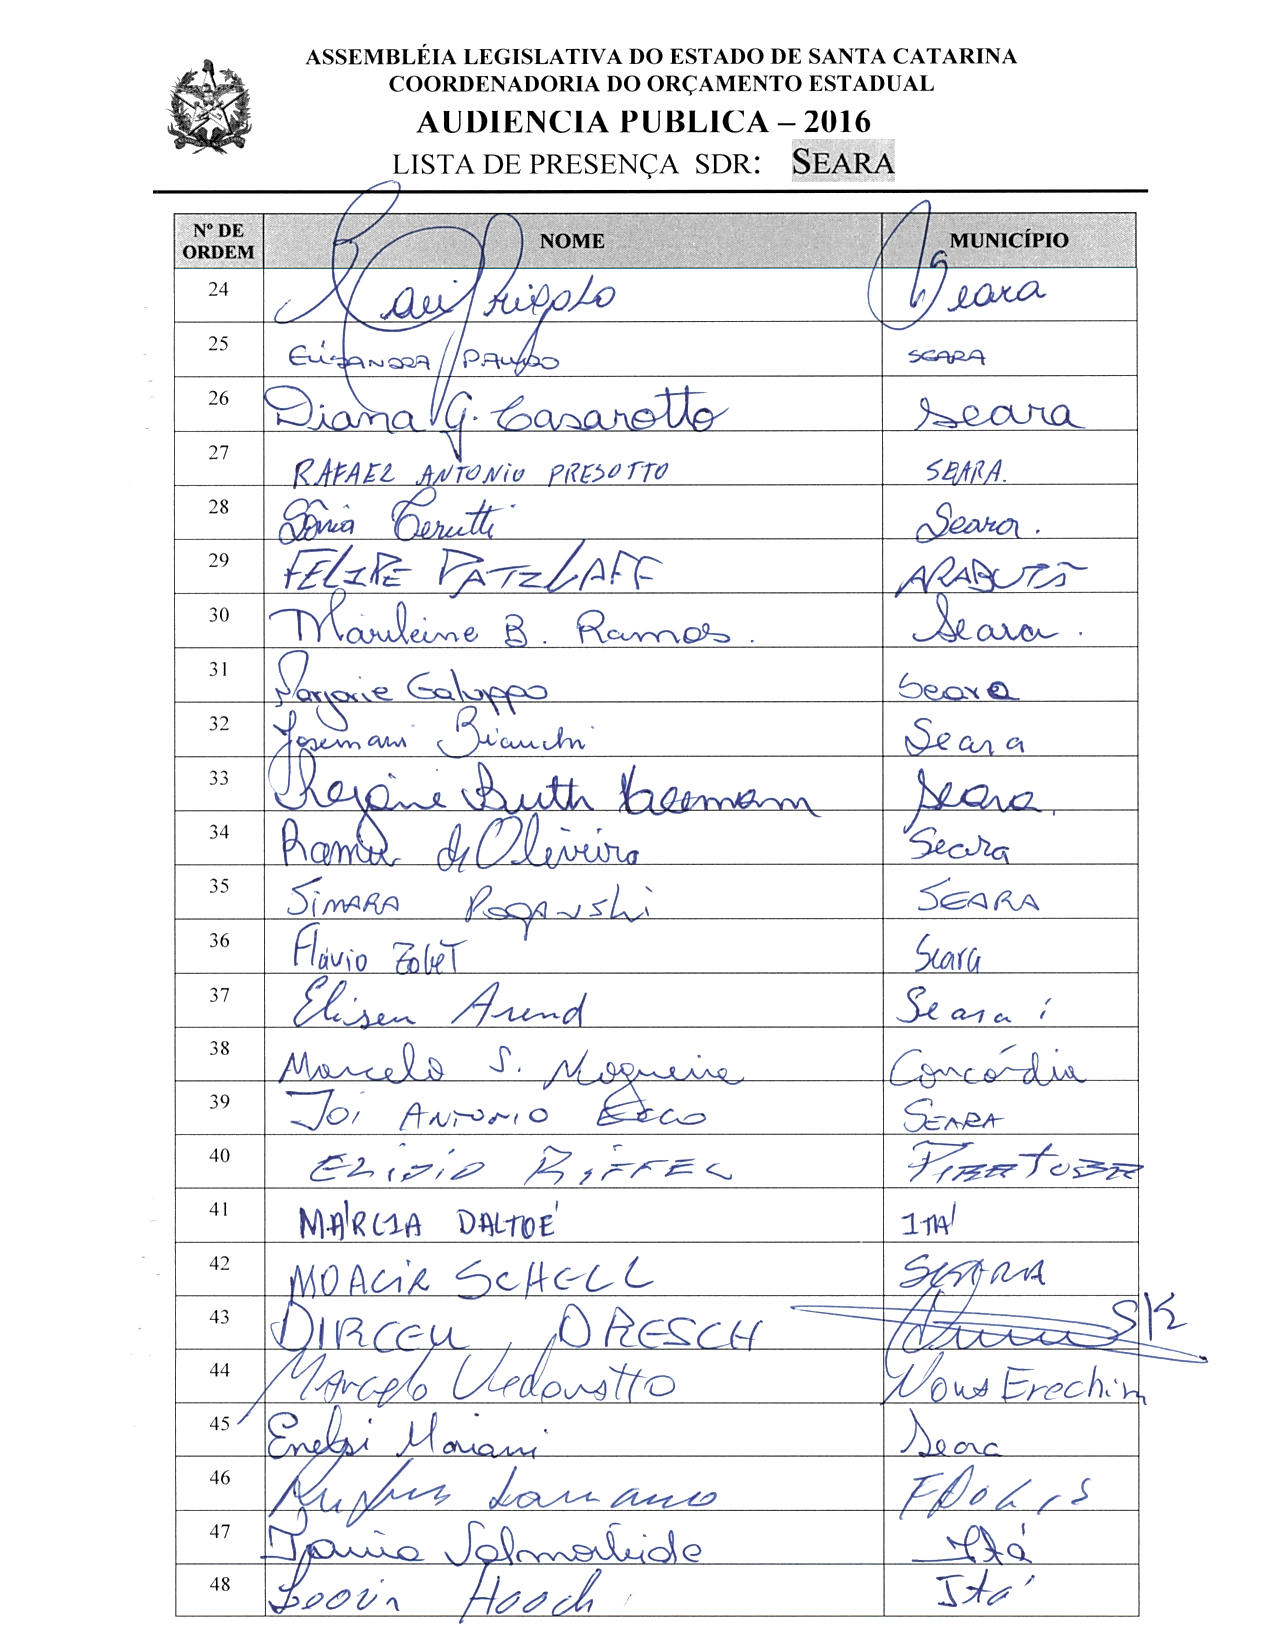 ASSEMBLÉIA LEGISLATIVA DO ESTADO DE SANTA CATARINA
COORDENADORIA DO ORÇAMENTO ESTADUAL
AUDIENCIA PUBLICA – 2016
LISTA DE PRESENÇA SDR: SEARA
Nº DE ORDEM NOME MUNICÍPIO
24 Seara
25 ELISANDRA PAULO SEARA
26 Diana G. Casarotto Seara
27 RAFAEL ANTONIO PRESOTTO SEARA.
28 Sônia Cerutti Seara.
29 FELIPE PATZLAFF ARABUTÃ
30 Marileine B. Ramos. Seara.
31 Marjorie Galuppo Seara
32 Josemari Bianchi Seara
33 Rejane Ruth Seara.
34 de Oliveira Seara
35 SIMARA SEARA
36 Flávio Zolet Seara
37 Eliseu Arend Seara
38 Marcelo S. Nogueira Concórdia
39 ANTONIO SEARA
40 ELIDIO RIFFEL PIRATUBA
41 MÁRCIA DALTOÉ ITÁ
42 MOACIR SCHELL SEARA
43 DIRCEU DRESCH
44 Marcelo Vedovatto Nova Erechim
45 Mariani Seara
46 FPOLIS
47 Itá
48 Itá